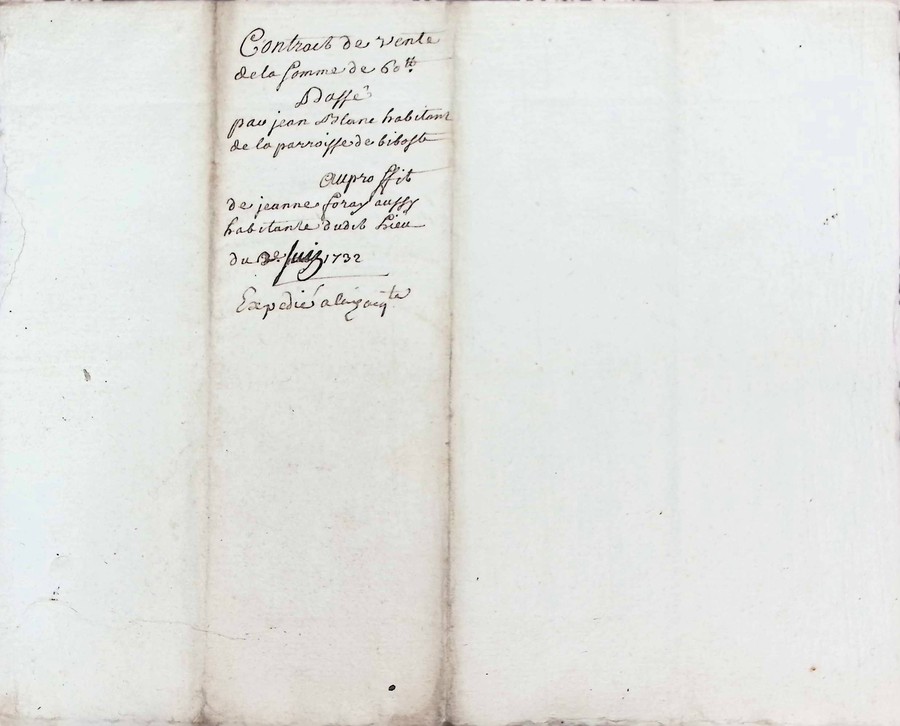 Contract de vente
de la somme de 60tt.
Passé
par jean Blanc habitant
de la parroisse de bibost
au proffit
de jeanne foray aussy
habitante dudit Lieu
du 3e. Juin 1732
Expedié a la